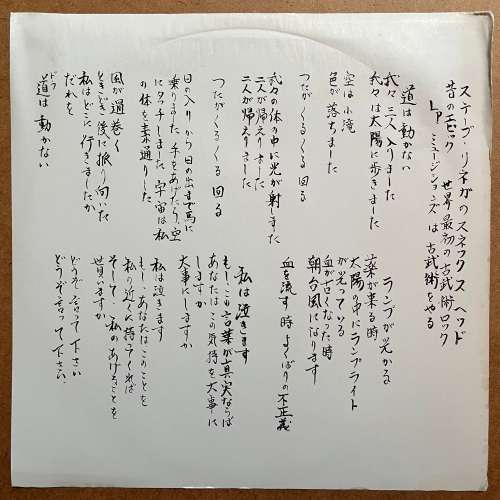 ステーブ・リネガのスネックスヘッド
昔のエピック 世界最初の古武術ロック
LP ミュージションズは古武術をやる
道は動かない
我々二人入りました
我々は太陽に歩きました
空は小滝
色が落ちました
つたがくるくる回る
我々の体の中に光が射しました
二人が帰えりました
二人が帰えりました
つたがくるくる回る
日の入りから日の出まで馬に
乗りました 手をあげたら、空
にタッチしました 宇宙は私
の体を素通りした
風が過巻く
ときどき後に振り向いた
私はどこに行きましたか
だれを
道は動かない
ランプが光かる
薬が来る時
太陽の中にランプライト
が光っている
血が亡くなった時
朝台風になります
血を流す時 よくばりの不正義
私は泣きます
もしこの言葉が真実ならば
あなたはこの気持を大事に
しますか
大事にしますか
私は泣きます
もし、あなたはこのことを
私の近くに持うてくれば
そして私のあげることを
貰いますか
どうぞ言って下さい
どうぞ言って下さい